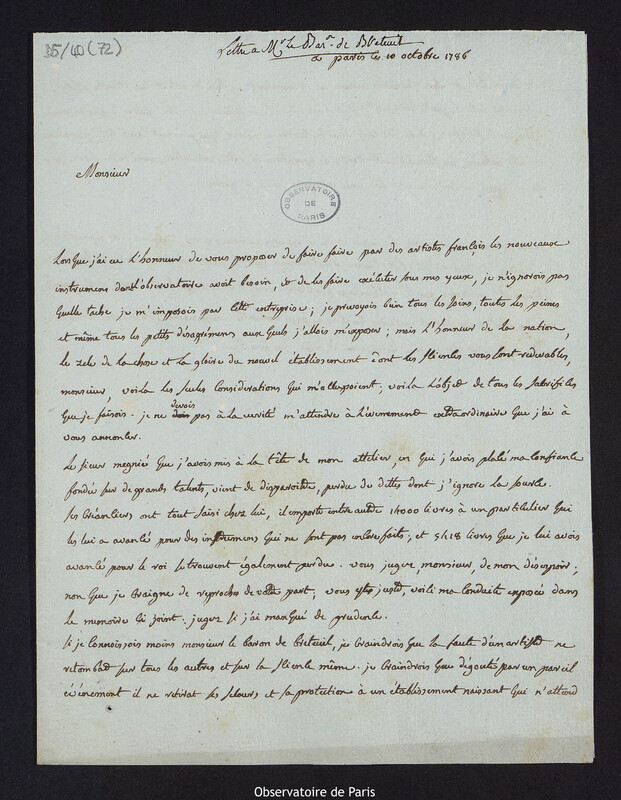 35/40 (72)
Lettre a Mr le Bar.n de Breteuil
a paris le 10 octobre 1786
Monsieur
OBSERVATOIRE
DE
PARIS
Lorsque j'ai eu l'honneur de vous proposer de faire faire par des artistes françois les nouveaux
instrumens dont l'observatoire avoit besoin, & de les faire exécuter sous mes yeux, je n'ignorois pas
quelle tache je m'imposois par cette entreprise; je prevoyois bien tous les soins, toutes les peines
et même tous les petits désagrémens aux quels j'allois m'exposer; mais l'honneur de la nation,
le zele de la chose et la gloire du nouvel établissement dont les sciences vous sont redevables,
monsieur, voila les seules considerations qui m'occupoient; voila l'objet de tous les sacrifices
que je faisois. je ne devois pas à la verité m'attendre à l'évenement extraordinaire que j'ai à
vous annoncer.
Le sieur megnié que j'avois mis à la tête de mon attelier, en qui j'avois placé ma confiance
fondée sur de grands talents, vient de disparoitre, perdu de dettes dont j'ignore la source.
ses créanciers ont tout saisi chez lui, il emporte entre autre 14000 livres à un particulier qui
les lui a avancé pour des instrumens qui ne sont pas encore faits; et 5418 livres que je lui avois
avancé pour le roi se trouvent également perdus. vous jugez, monsieur, de mon désespoir;
non que je craigne de reproches de votre part; vous etes juste, voici ma conduite exposée dans
le memoire ci joint: jugez si j'ai manqué de prudence.
si je connoissois moins monsieur le baron de Breteuil, je craindrois que la faute d'un artiste ne
retombat sur tous les autres et sur la science même. je craindrois que dégouté par un pareil
évènement il ne retirat ses secours et sa protection à un établissement naissant qui n'attend
Observatoire de Paris